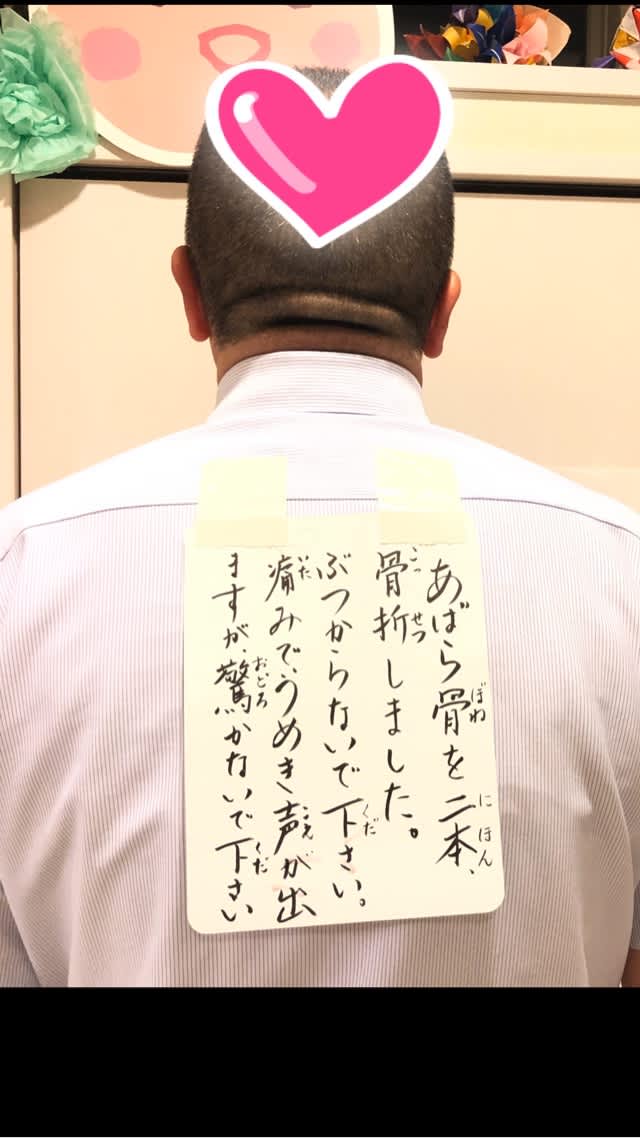 あばら骨を二本、
骨折しました。
ぶつからないで下さい。
痛みで、うめき声が出
ますが、驚かないで下さい